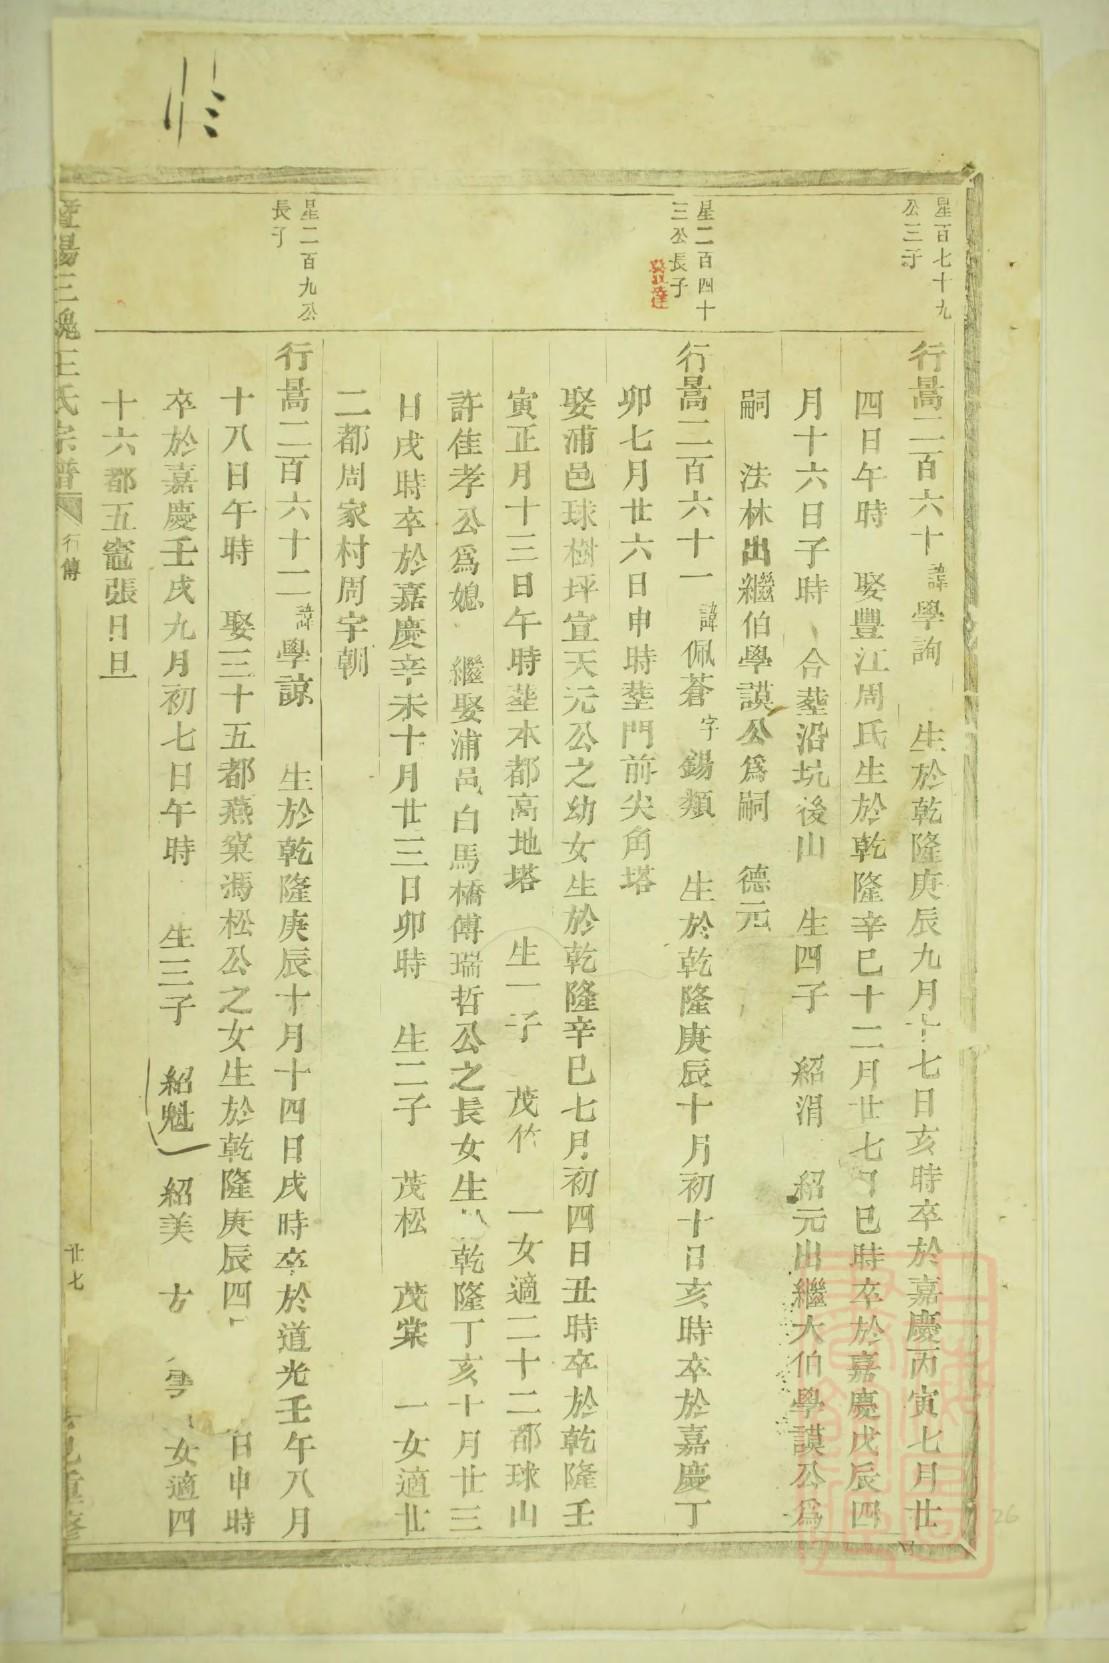 星百七十九
公三子
行暠二百六十諱學詢　生於乾隆庚辰九月十七日亥時卒於嘉慶丙寅七月廿
四日午時　娶豐江周氏生於乾隆辛巳十二月廿七日巳時卒於嘉慶戊辰四
月十六日子時　合塟沿坑後山　生四子　紹涓　紹元出繼大伯學謨公爲
嗣　法林出繼伯學謨公爲嗣　德元
星二百四十
三公長子
發達
行暠二百六十一諱佩蒼字錫類　生於乾隆庚辰十月初十日亥時卒於嘉慶丁
卯七月廿六日申時塟門前尖角塔
娶浦邑球樹坪宣天元公之幼女生於乾隆辛巳七月初四日丑時卒於乾隆壬
寅正月十三日午時塟本都高地塔　生一子　茂竹　一女適二十二都球山
許佳孝公爲媳　繼娶浦邑白馬橋傅瑞哲公之長女生　乾隆丁亥十月廿三
日戌時卒於嘉慶辛未十月廿三日卯時　生二子　茂松　茂棠　一女適廿
二都周家村周宇朝
星二百九公
長子
行暠二百六十二諱學諒　生於乾隆庚辰十月十四日戌時卒於道光壬午八月
十八日午時　娶三十五都燕窠馮松公之女生於乾隆庚辰四　日申時
卒於嘉慶壬戌九月初七日午時　生三子　紹魁　紹美　雲　女適四
十六都五竈張日旦
暨陽三槐王氏宗譜　行傳　廿七　重修
26